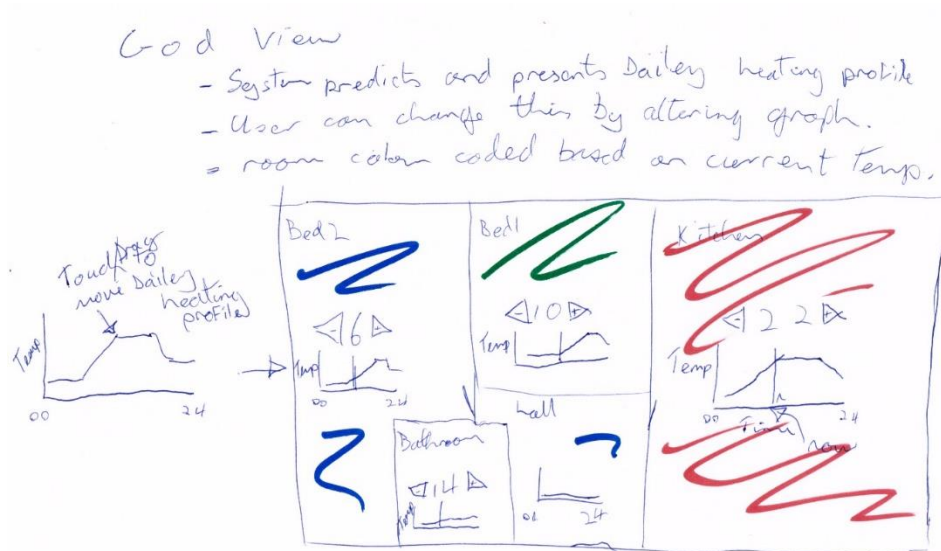 God View
- System predicts and presents Dailey heating profile
- User can change this by altering graph.
= room colour coded based on current Temp.
Touch/Drag to
move Dailey
heating
profile
Temp
00 24
Bed 2
◁ 6 ▷
Temp
00 24
Bed 1
◁ 10 ▷
Temp
Kitchen
◁ 22 ▷
Temp
00 Time 24
now
Bathroom
◁ 14 ▷
Temp
hall
00 24